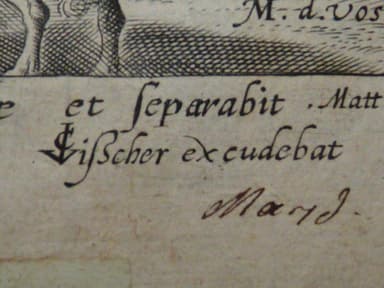 M. d. Vos
et ſeparabit . Matt
CJVisscher excudebat